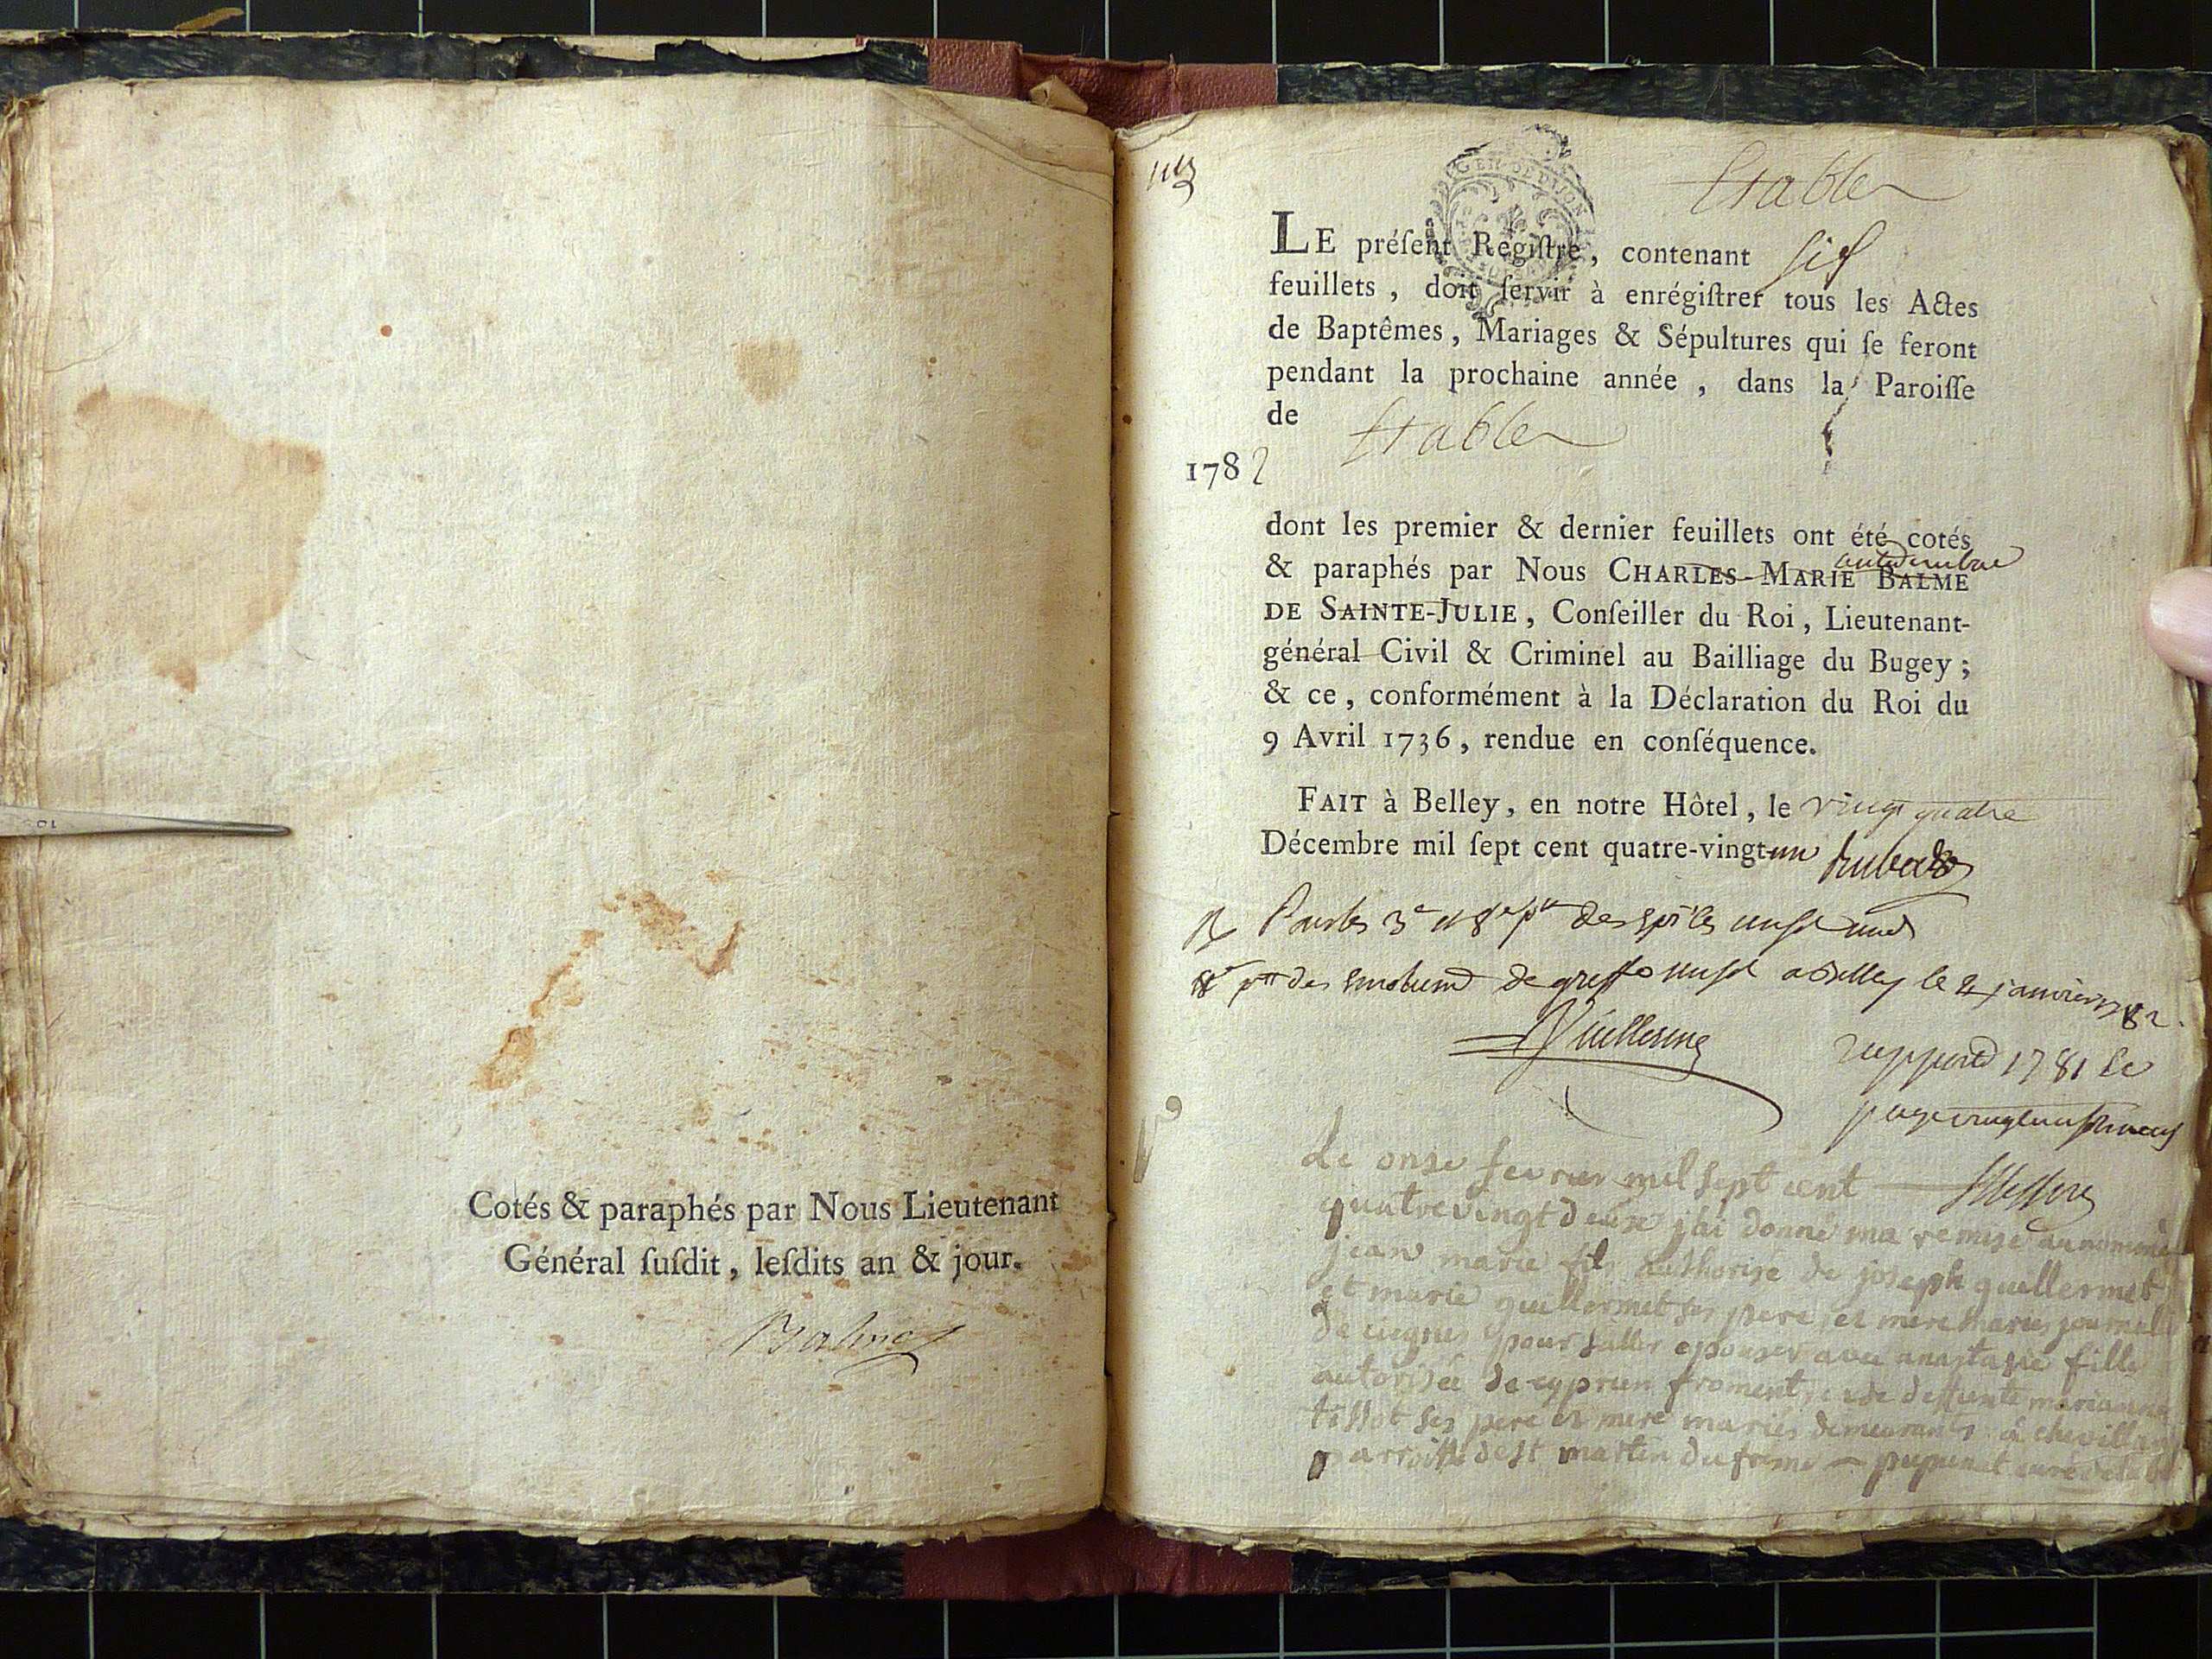 Cotés & paraphés par Nous Lieutenant
Général ſuſdit, leſdits an & jour.
Balme
Etables
LE préſent Regiſtre, contenant six
feuillets, doit ſervir à enrégiſtrer tous les Actes
de Baptêmes, Mariages & Sépultures qui ſe feront
pendant la prochaine année, dans la Paroiſſe
de Etables
1782
dont les premier & dernier feuillets ont été cotés
& paraphés par Nous CHARLES-MARIE BALME
DE SAINTE-JULIE, Conſeiller du Roi, Lieutenant-
général Civil & Criminel au Bailliage du Bugey;
& ce, conformément à la Déclaration du Roi du
9 Avril 1736, rendue en conſéquence.
FAIT à Belley, en notre Hôtel, le vingt quatre
Décembre mil ſept cent quatre-vingt-un
de greffe a Belley le 4 janvier 1782.
1781
Le onze fevrier mil sept cent
quatrevingt deux j'ai donné ma remise au nommé
jean marie fils authorisé de joseph guillermet
et marie guillermet ses pere et mere mariés
pour saller epouser avec anastasie fille
autorisée de cyprien froment et de deffunte marianne
tissot ses pere et mere mariés demeurants à chevillard
parroisse de st martin dufrene